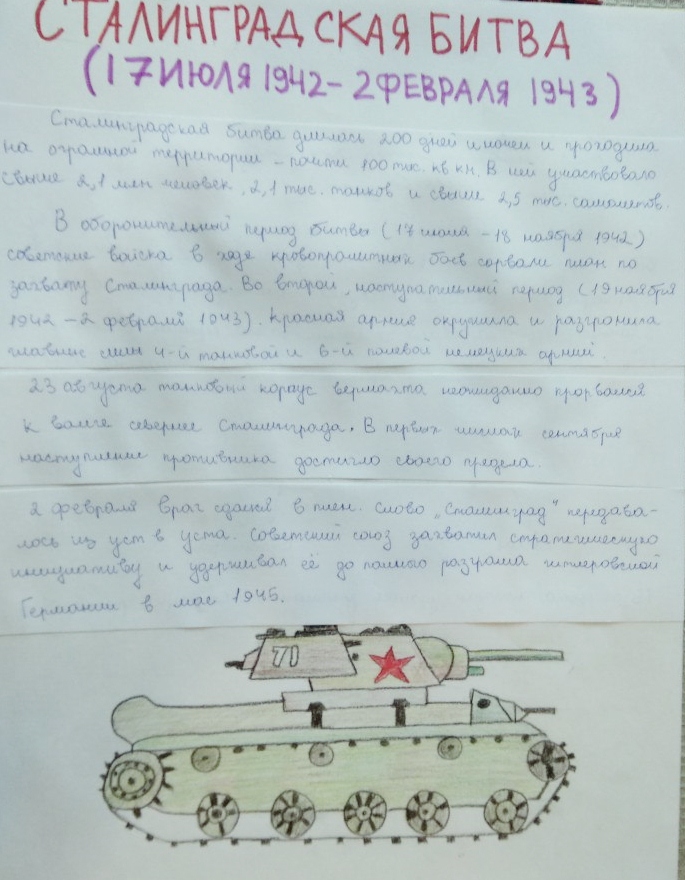 СТАЛИНГРАДСКАЯ БИТВА
(17 ИЮЛЯ 1942 - 2 ФЕВРАЛЯ 1943)
Сталинградская битва длилась 200 дней и ночей и проходила
на огромной территории - почти 100 тыс. кв км. В ней участвовало
свыше 2,1 млн человек, 2,1 тыс. танков и свыше 2,5 тыс. самолетов.
В оборонительный период битвы (17 июля - 18 ноября 1942)
советские войска в ходе кровопролитных боев сорвали план по
захвату Сталинграда. Во второй, наступательный период (19 ноября
1942 - 2 февраля 1943). Красная армия окружила и разгромила
главные силы 4-й танковой и 6-й полевой немецких армий.
23 августа танковый корпус вермахта неожиданно прорвался
к волге севернее Сталинграда. В первых числах сентября
наступление противника достигло своего предела.
2 февраля враг сдался в плен. Слово „Сталинград" передава-
лось из уст в уста. Советский союз захватил стратегическую
инициативу и удерживал её до полного разгрома гитлеровской
Германии в мае 1945.
71